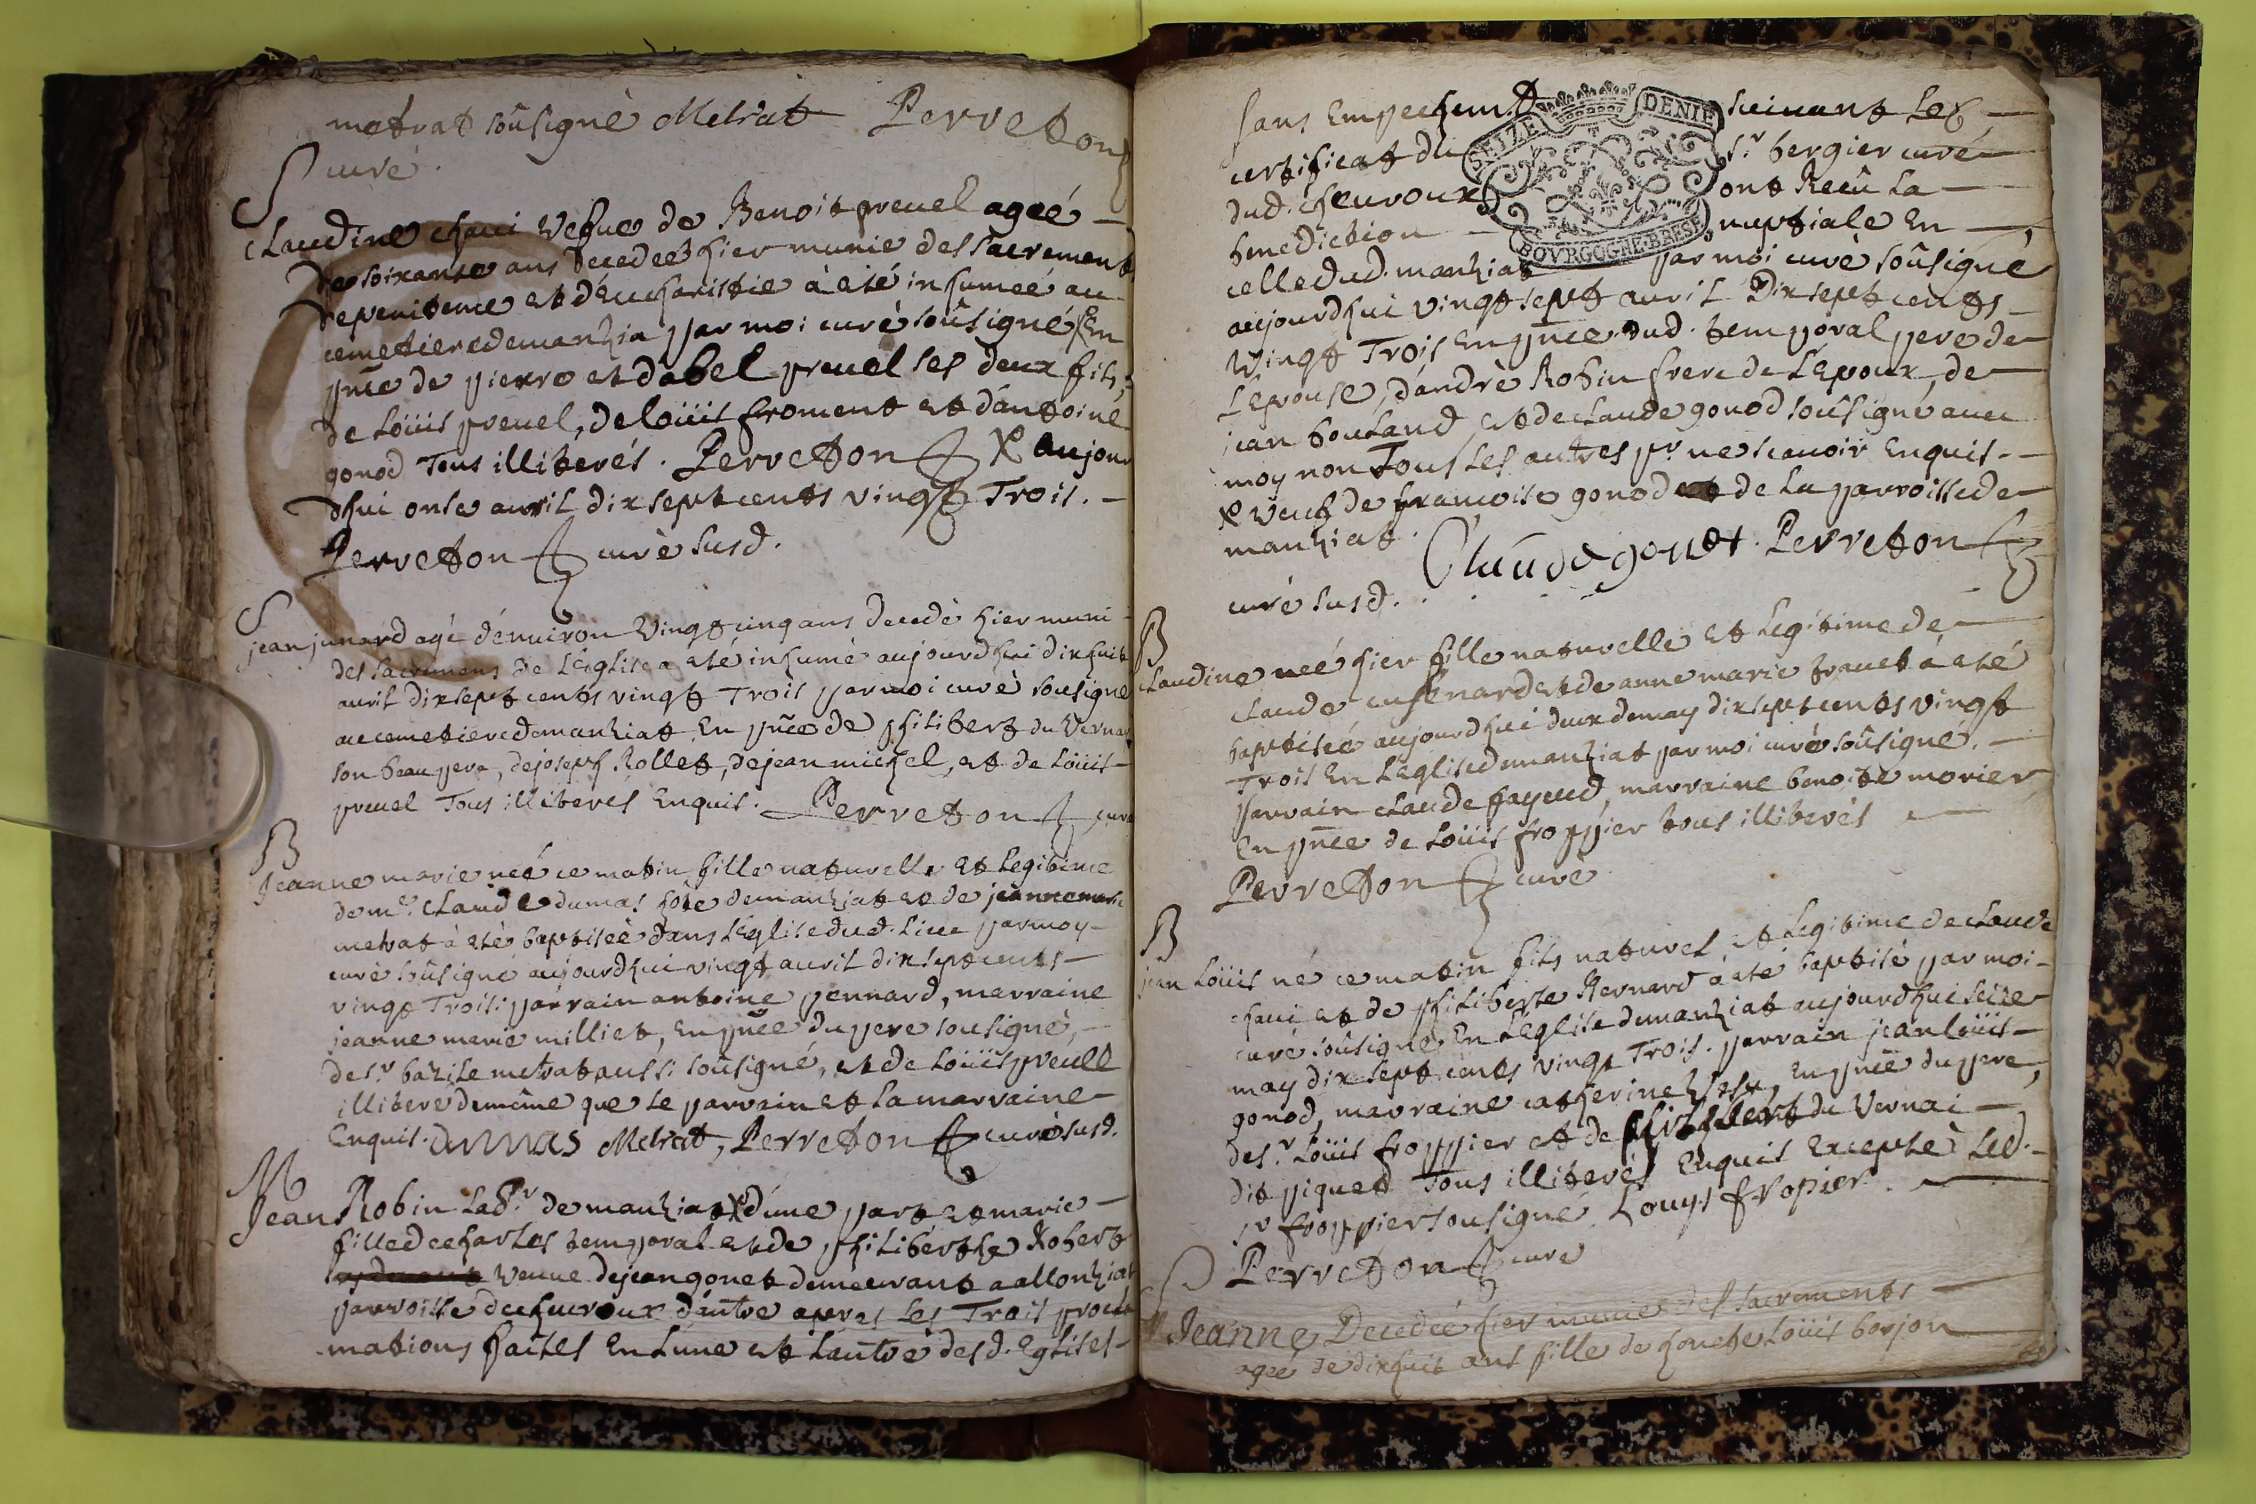 metrat soûsigné Metrat Perreton
curé.
S
Claudine chaui vefue de Benoit preuel ageé
de soixante ans decedeé hier munie des sacrements
de penitence et d'Eucharistie à eté inhumeé au
cemetiere de manziat par moi curé soûsigné X En
pñce de pierre et d'abel preuel ses deux fils,
de Loüis preuel, de loüis froment et d'antoine
gonod Tous illiterés. Perreton X aujour
d'hui onse auril dix sept cents vingt Trois.
Perreton curé susd.
S
jean junard agé d'enuiron Vingt cinq ans decedé hier muni
des sacremens de L'Eglise a eté inhumé aujourdhui dix huit
auril dix sept cents vingt Trois par moi curé sousigné
au cemetiere de manziat En pñce de philibert du Verna
son beau pere, de joseph Rollet, de jean michel, et de Loüis
preuel Tous illiterés Enquis. Perreton curé
B
Jeanne marie neé ce matin fille naturelle et Legitime
de mr. Claude dumas hôte de manziat et de jeanne marie
metrat à eté baptiseé dans L'Eglise dud. Lieu par moy
curé soûsigné aujourdhui vingt auril dix sept cents
vingt Trois: parrain antoine pennard, marraine
jeanne marie milliet, En pñce du pere sousigné,
de sr. bazile metrat aussi soûsigné, et de Loüis preuel
illiteré de même que le parrain et la marraine
Enquis. DUMAS Metrat, Perreton curé susd.
M
Jean Robin Labr. de manziat X d'une part et marie
fille de charles temporal et de philiberthe Robert
veuue de jean gonet demeurant a allonziat
parroisse de cheuroux d'autre apres les Trois procla
mations faites En L'une et L'autre desd. Eglises
sans Empechemt suiuant Le
certificat du sr. bergier curé
dud. cheuroux ont Receû La
benediction nuptiale En
SEIZE DENIE
BOVRGOGNE·BRESSE
celle dud. manziat par moi curé soûsigné
aujourdhui vingt sept auril Dix sept cents
Vingt Trois En pñce dud. temporal pere de
L'epouse, d'andré Robin frere de L'epoux, de
jean bouland, et de claude gonod soûsigné auec
moy non Tous Les autres pr. ne scauoir Enquis.
X veuf de francoise gonod de La parroisse de
manziat. Claude gonet. Perreton
curé susd.
B
Claudine neé hier fille naturelle et Legitime de
claude cusenard et de anne marie brouet à eté
baptiseé aujourdhui deux de may dix sept cents vingt
Trois En L'Eglise de manziat par moi curé soûsigné.
parrain claude fayoud, marraine benoite morier,
En pñce de Loüis froppier tous illiterés
Perreton curé
B
jean Loüis né ce matin fils naturel et Legitime de claude
chaui et de philiberte Renard à eté baptisé par moi
curé soûsigné En L'Eglise de manziat aujourdhui seize
may dix sept cents vingt Trois. parrain jean loüis
gonod, marraine catherine En pñce du pere,
de sr. Loüis froppier et de philibert du Vernai
dit piquet Tous illiterés Enquis Excepté Led.
sr froppier sousigné. Louys fropier.
Perreton curé
S
Jeanne Decedeé hier munie des sacrements
ageé de dix huit ans fille de honehe Loüis borjon